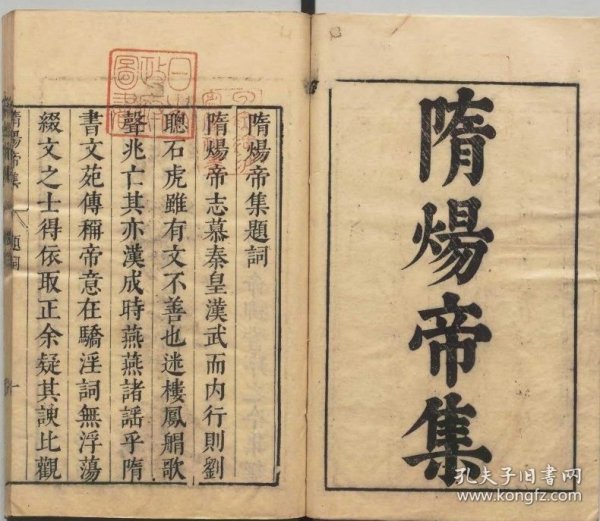 隋煬帝集
隋煬帝集題詞
隋煬帝志慕秦皇漢武而内行則劉
聰石虎雖有文不善也迷樓鳳艒歌
聲兆亡其亦漢成時燕燕諸謡乎隋
書文苑傳稱帝意在驕淫詞無浮蕩
綴文之士得依取正余疑其諛比觀
隋煬帝集
題詞
一
孔夫子旧书网
www.kongfz.com